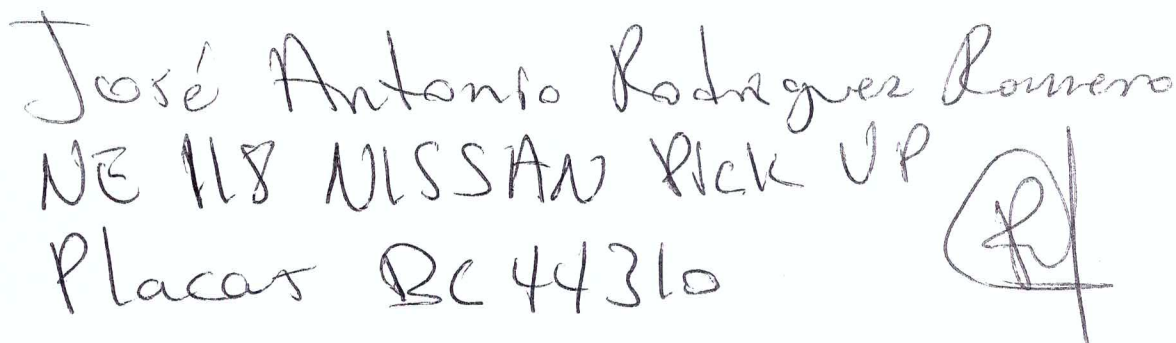 José Antonio Rodriguez Romero
NE 118 NISSAN PICK UP
Placas BC 44310